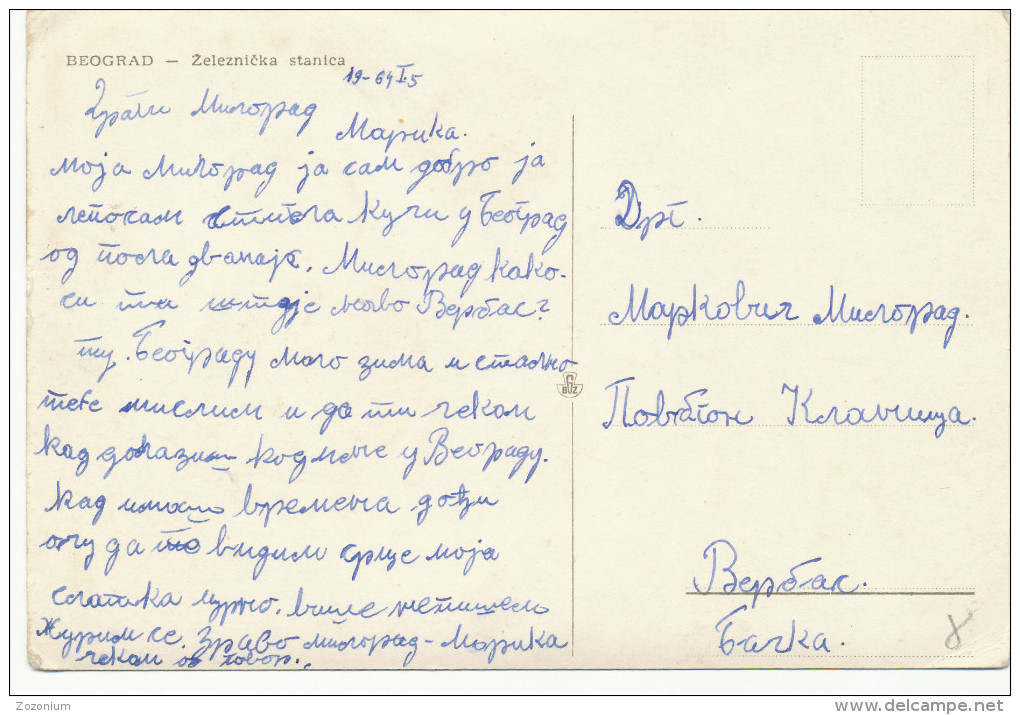 BEOGRAD — Železnička stanica
19-64 I.5
Драги Милорад
Марика.
моја Милорад ја сам добро ја
лепосам стигла кући у Београд
од посла дванајс. Милорад како-
си ти ново Вербас?
ту. Београду мого зима и стално
тебе мислим и да ти чекам
кад долазиш код мене у Београду.
кад имаш времена дођи
оћу да те видим срце моја
слатка црно. више непишем
Журим се. Здраво милорад-Марика
чекам од говор..
GBUZ
Дрг.
Марковић Милорад.
Повратон Кланица.
Вербас.
Бачка.
8
Zozonium
delcampe.net